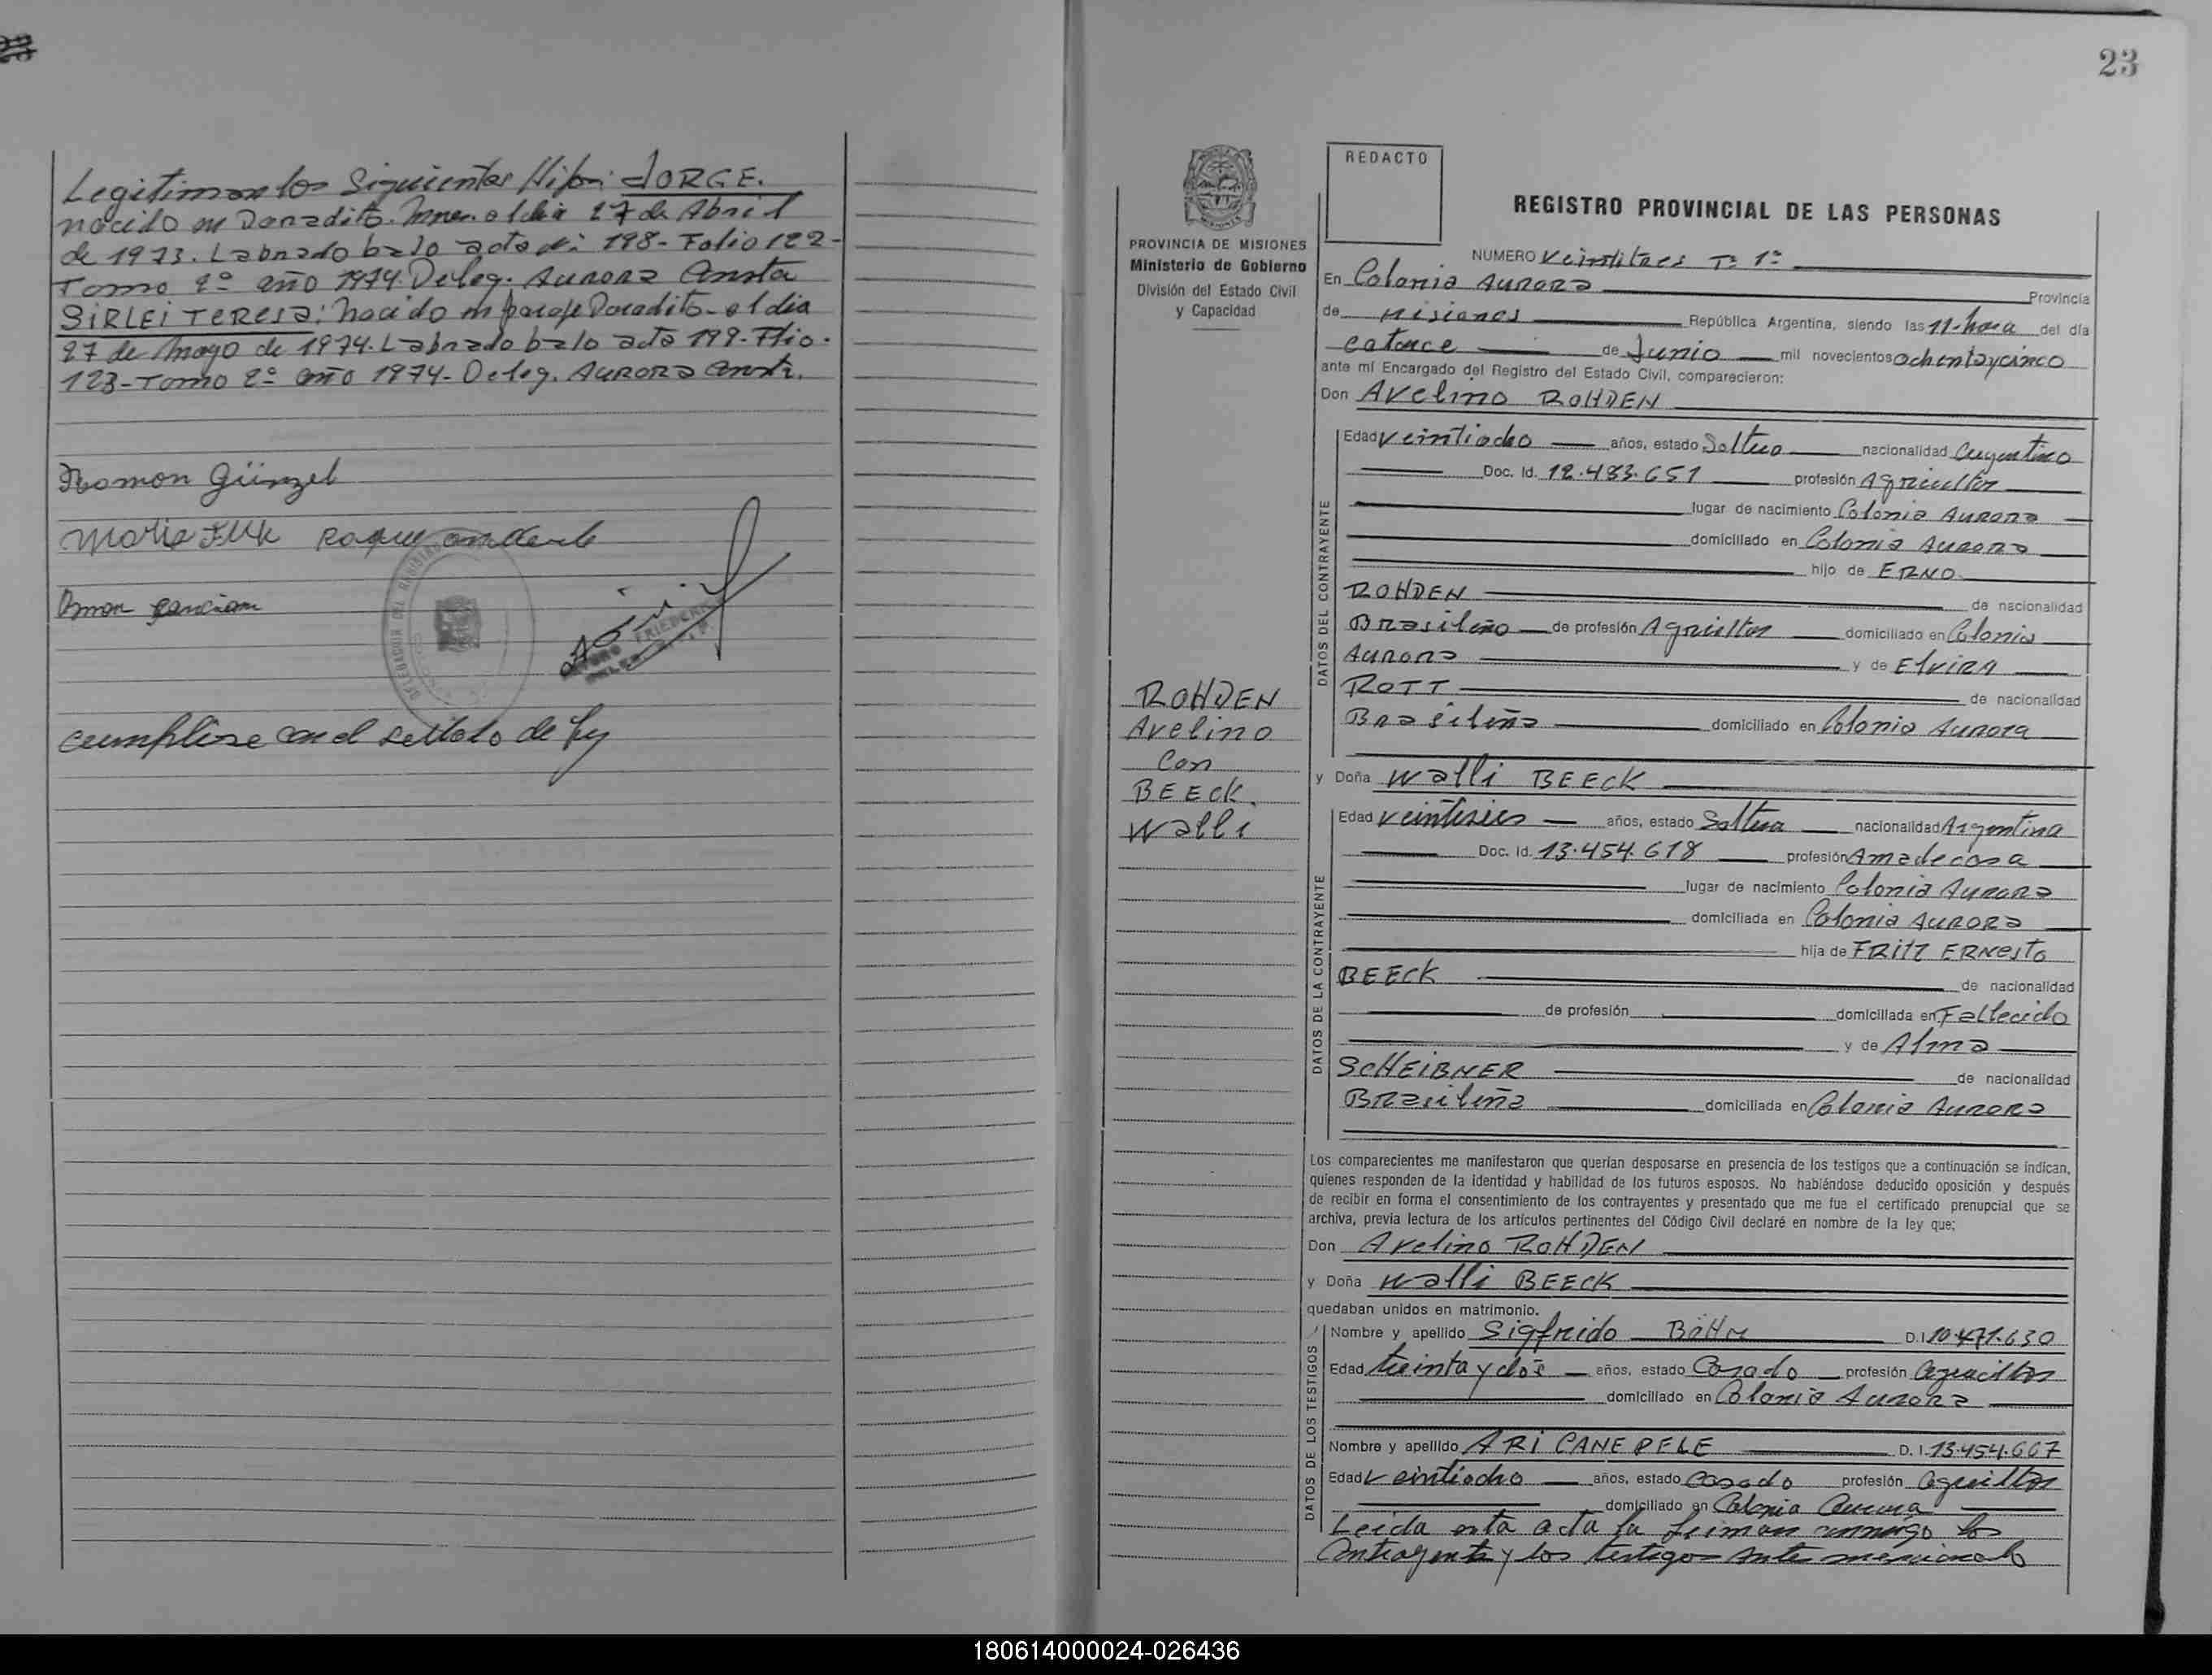 Legitiman los Siguientes Hijos: JORGE.
nacido en Doradito. Mnes. el dia 27 de Abril
de 1973. Labrado bajo acta nº 198 - Folio 122 -
Tomo 2º año 1974. Deleg. AURORA Consta
SIRLEI TERESA: nacido en paraje Doradito - el dia
27 de Mayo de 1974. Labrado bajo acta 199 - Flio.
123 - Tomo 2º año 1974 - Deleg. AURORA Const.
Ramon Günzel
cumplise con el sellado de ley
23
PROVINCIA DE MISIONES
Ministerio de Gobierno
División del Estado Civil
y Capacidad
ROHDEN
Avelino
Con
BEECK.
Walli
REDACTO
REGISTRO PROVINCIAL DE LAS PERSONAS
NUMERO Veintitres Tº 1º
En Colonia AURORA Provincia
de Misiones República Argentina, siendo las 11-hora del día
catorce de Junio mil novecientos ochentaycinco
ante mí Encargado del Registro del Estado Civil, comparecieron:
Don Avelino ROHDEN
DATOS DEL CONTRAYENTE
Edad veintiocho años, estado Soltero nacionalidad Argentino
Doc. Id. 12.483.651 profesión Agricultor
lugar de nacimiento Colonia AURORA
domiciliado en Colonia AURORA
hijo de ERNO
ROHDEN de nacionalidad
Brasileño de profesión Agricultor domiciliado en Colonia
AURORA y de ElviRA
ROTT de nacionalidad
Brasileña domiciliado en Colonia Aurora
y Doña Walli BEECK
DATOS DE LA CONTRAYENTE
Edad veintiseis años, estado Soltera nacionalidad Argentina
Doc. Id. 13.454.618 profesión Amadecasa
lugar de nacimiento Colonia AURORA
domiciliada en Colonia AURORA
hija de FRITZ ERNesto
BEECK de nacionalidad
de profesión domiciliada en Fallecido
y de Alma
SCHEIBNER de nacionalidad
Brasileña domiciliada en Colonia AURORA
Los comparecientes me manifestaron que querían desposarse en presencia de los testigos que a continuación se indican,
quienes responden de la identidad y habilidad de los futuros esposos. No habiéndose deducido oposición y después
de recibir en forma el consentimiento de los contrayentes y presentado que me fue el certificado prenupcial que se
archiva, previa lectura de los artículos pertinentes del Código Civil declaré en nombre de la ley que;
Don Avelino ROHDEN
y Doña Walli BEECK
quedaban unidos en matrimonio.
DATOS DE LOS TESTIGOS
Nombre y apellido Sigfrido BöHM D.I. 10.471.630
Edad treinta y dos años, estado Casado profesión Agricultor
domiciliado en Colonia Aurora
Nombre y apellido ARI CANEPELE D. I. 13.454.607
Edad veintiocho años, estado Casado profesión Agricultor
domiciliado en Colonia Aurora
Leida esta acta la firman conmigo los
Contrayentes y los testigos ante mencionado
180614000024-026436